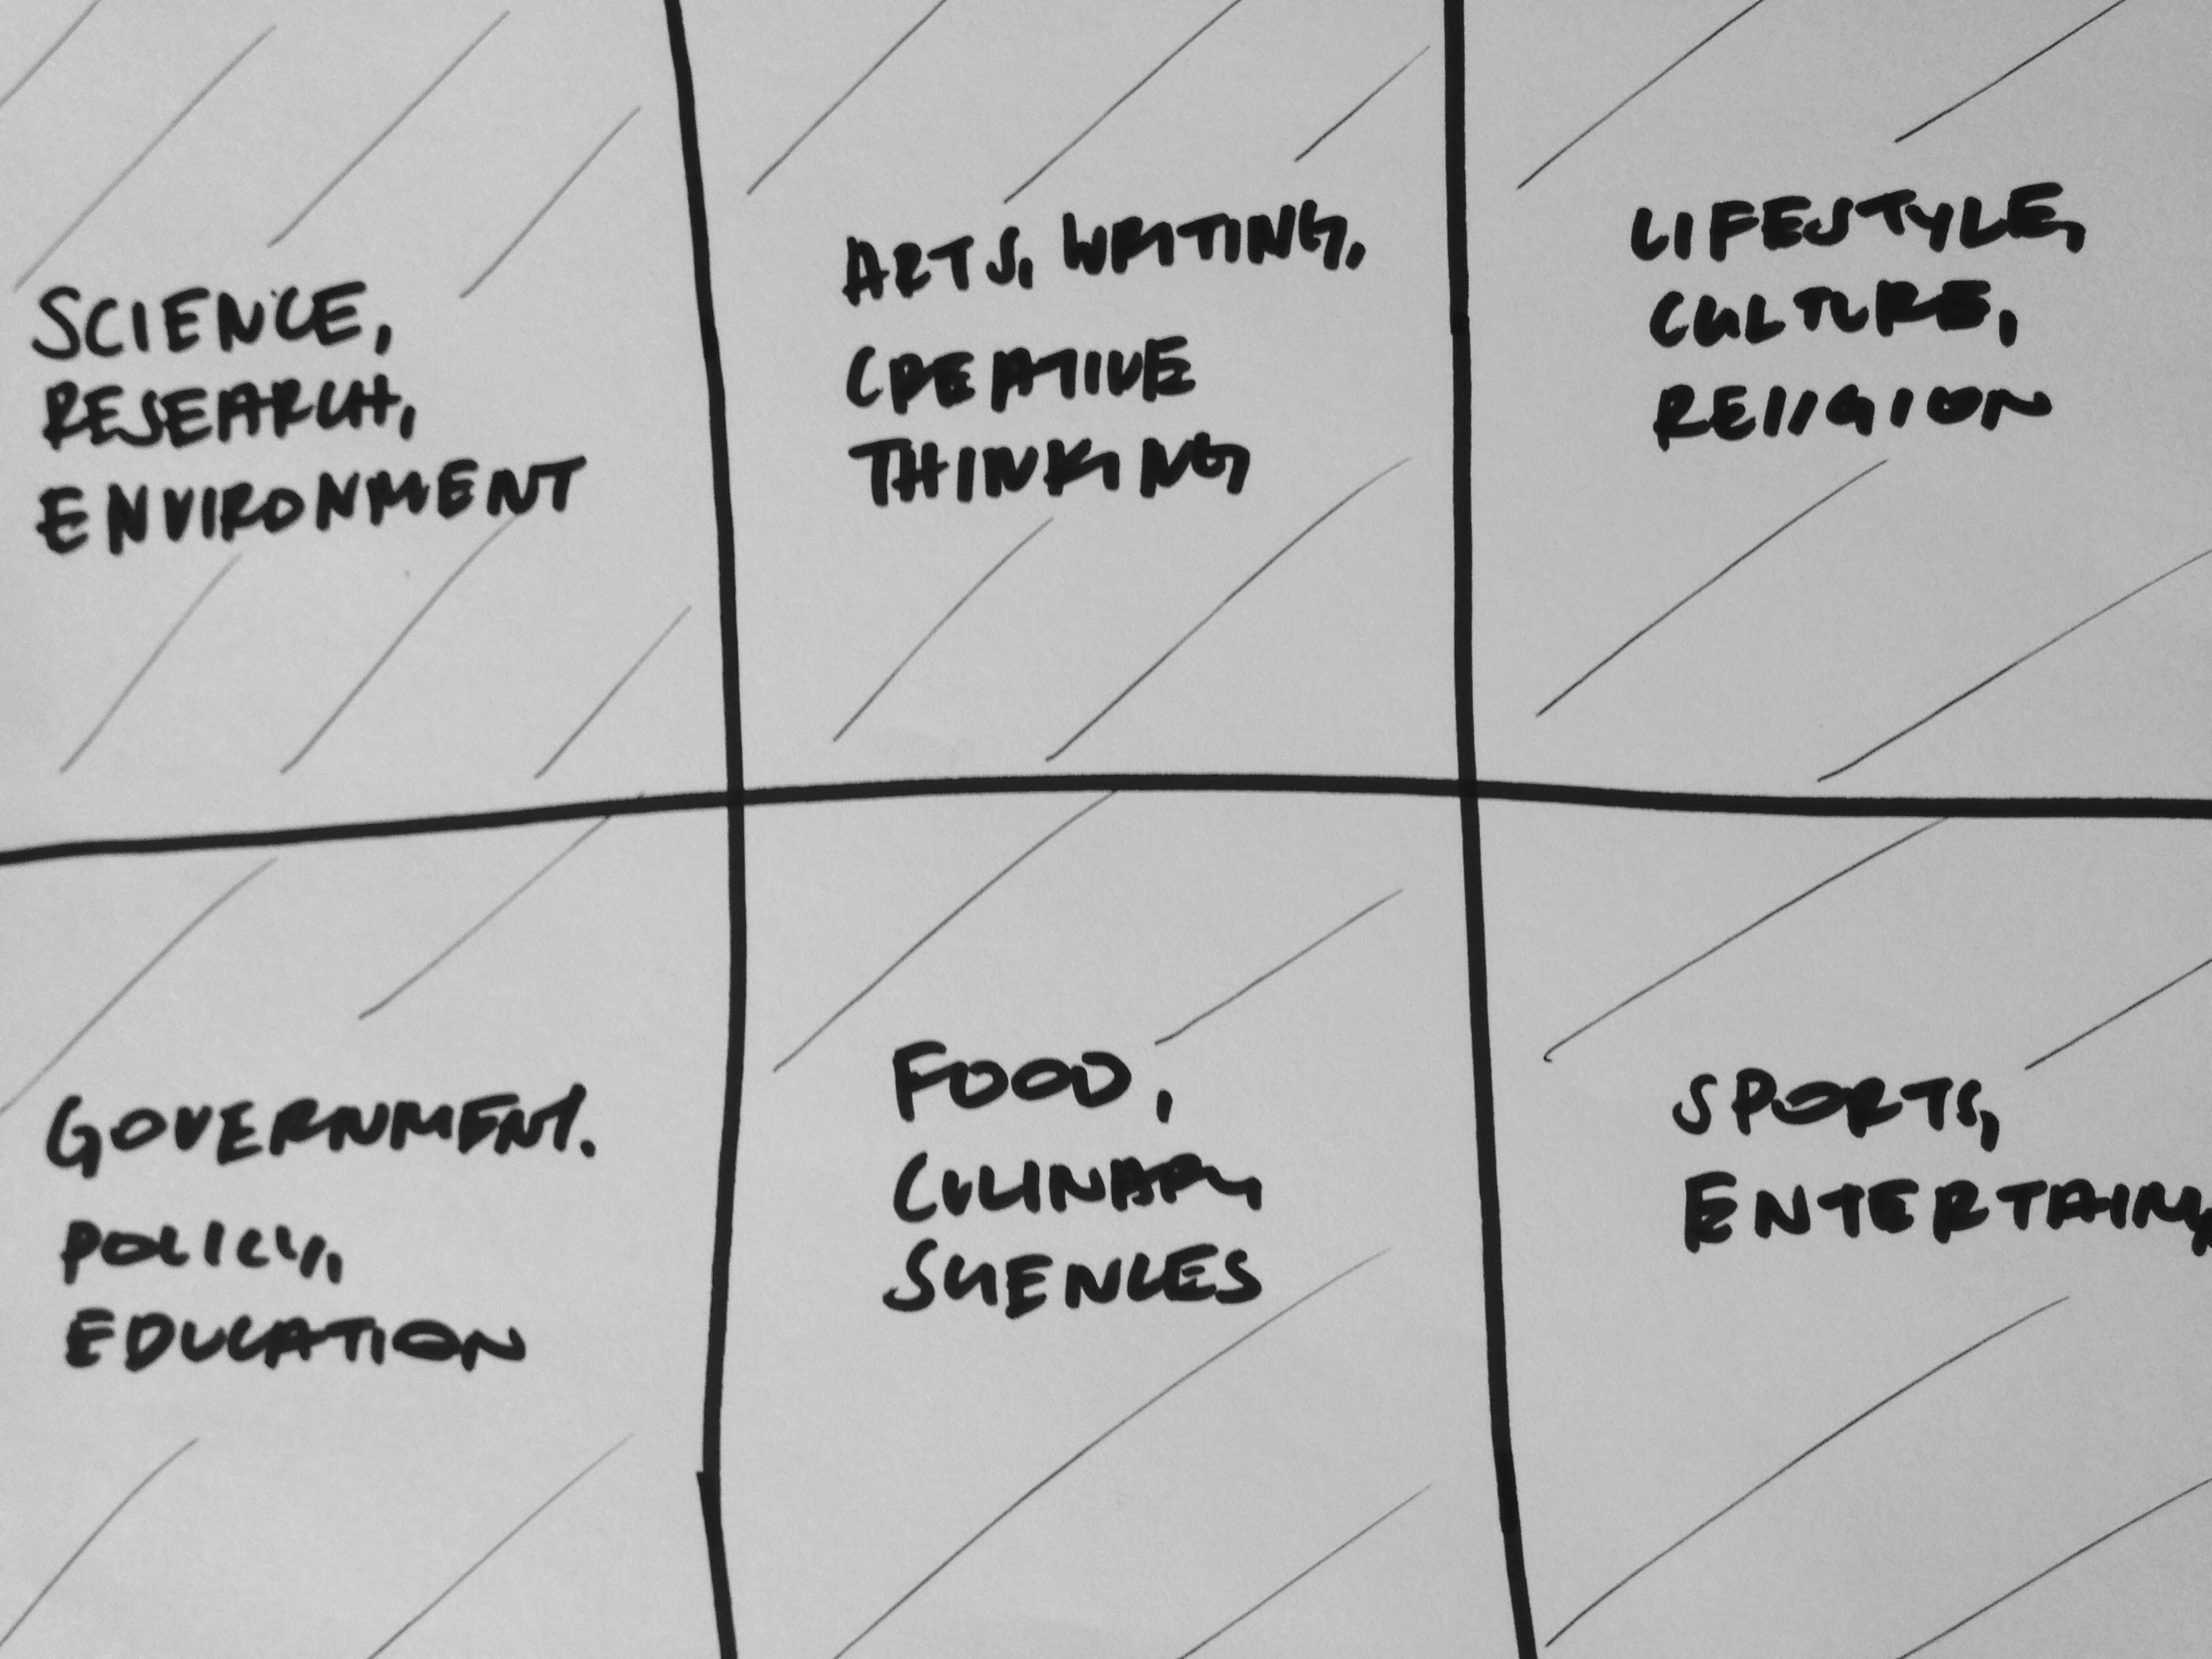 SCIENCE,
RESEARCH,
ENVIRONMENT
ARTS, WRITING,
CREATIVE
THINKING
LIFESTYLE,
CULTURE,
RELIGION
GOVERNMENT.
POLICY,
EDUCATION
FOOD,
CULINARY
SCIENCES
SPORTS,
ENTERTAINM